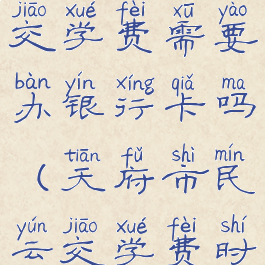 jiāo xué fèi xū yào
交学费需要
bàn yín xíng qiǎ ma
办银行卡吗
tiān fǔ shì mín
（天府市民
yún jiāo xué fèi shí
云交学费时